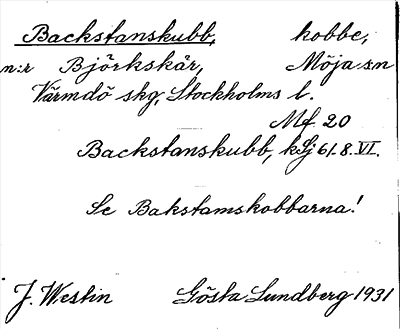 Backstanskubb, kobbe,
n:r Björkskär, Möja sn
Värmdö skg, Stockholms l.
Mf 20
Backstanskubb, kSj 61.8.VI.
Se Bakstamskobbarna!
J. Westin Gösta Lundberg 1931